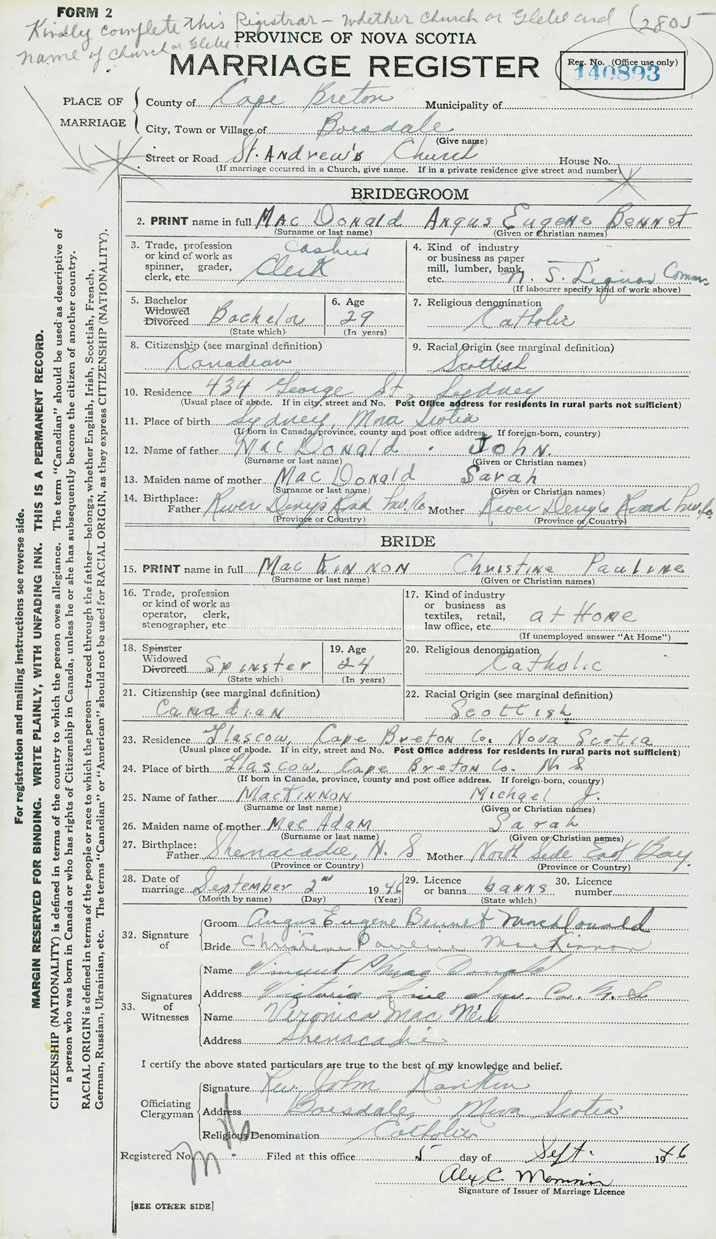 FORM 2
Kindly complete this Registrar - Whether Church or Glebe and (2805
name of Church or Glebe.
PROVINCE OF NOVA SCOTIA
MARRIAGE REGISTER
Reg. No. (Office use only)
140893
PLACE OF MARRIAGE
County of Cape Breton Municipality of
City, Town or Village of Boisdale
(Give name)
Street or Road St. Andrew's Church House No.
(If marriage occurred in a Church, give name. If in a private residence give street and number)
BRIDEGROOM
2. PRINT name in full MacDonald Angus Eugene Bennet
(Surname or last name) (Given or Christian names)
3. Trade, profession or kind of work as spinner, grader, clerk, etc. Cashier Clerk
4. Kind of industry or business as paper mill, lumber, bank, etc. N. S. Liquor Comm.
(If labourer specify kind of work above)
5. Bachelor Widowed Divorced Bachelor
(State which)
6. Age 29
(In years)
7. Religious denomination
Catholic
8. Citizenship (see marginal definition)
Canadian
9. Racial Origin (see marginal definition)
Scottish
10. Residence 434 George St. Sydney
(Usual place of abode. If in city, street and No. Post Office address for residents in rural parts not sufficient)
11. Place of birth Sydney, Nova Scotia
(If born in Canada, province, county and post office address. If foreign-born, country)
12. Name of father MacDonald John.
(Surname or last name) (Given or Christian names)
13. Maiden name of mother MacDonald Sarah
(Surname or last name) (Given or Christian names)
14. Birthplace:
Father River Denys Road Inv. Co. Mother River Denys Road Inv. Co.
(Province or Country) (Province or Country)
BRIDE
15. PRINT name in full MacKinnon Christine Pauline
(Surname or last name) (Given or Christian names)
16. Trade, profession or kind of work as operator, clerk, stenographer, etc
17. Kind of industry or business as textiles, retail, law office, etc. at Home
(If unemployed answer "At Home")
18. Spinster Widowed Divorced Spinster
(State which)
19. Age 24
(In years)
20. Religious denomination
Catholic
21. Citizenship (see marginal definition)
Canadian
22. Racial Origin (see marginal definition)
Scottish
23. Residence Glascow, Cape Breton Co. Nova Scotia
(Usual place of abode. If in city, street and No. Post Office address for residents in rural parts not sufficient)
24. Place of birth Glascow, Cape Breton Co. N S
(If born in Canada, province, county and post office address. If foreign-born, country)
25. Name of father MacKinnon Michael J.
(Surname or last name) (Given or Christian names)
26. Maiden name of mother MacAdam Sarah
(Surname or last name) (Given or Christian names)
27. Birthplace:
Father Shenacadie, N. S Mother North Side East Bay.
(Province or Country) (Province or Country)
28. Date of marriage September 2nd 1946
(Month by name) (Day) (Year)
29. Licence or banns banns
(State which)
30. Licence number
32. Signature of
Groom Angus Eugene Bennet MacDonald
Bride Christine Pauline MacKinnon
33. Signatures of Witnesses
Name Vincent MacDonald
Address Victoria
Name Veronica MacNeil
Address Shenacadie
I certify the above stated particulars are true to the best of my knowledge and belief.
Officiating Clergyman
Signature Rev. John Rankin
Address Boisdale, Nova Scotia
Religious Denomination Catholic
Registered No. Filed at this office 5 day of Sept. 1946
Alex C.
Signature of Issuer of Marriage Licence
[SEE OTHER SIDE]
For registration and mailing instructions see reverse side.
MARGIN RESERVED FOR BINDING. WRITE PLAINLY, WITH UNFADING INK. THIS IS A PERMANENT RECORD.
CITIZENSHIP (NATIONALITY) is defined in terms of the country to which the person owes allegiance. The term "Canadian" should be used as descriptive of
a person who was born in Canada or who has rights of Citizenship in Canada, unless he or she has subsequently become the citizen of another country.
RACIAL ORIGIN is defined in terms of the people or race to which the person—traced through the father—belongs, whether English, Irish, Scottish, French,
German, Russian, Ukrainian, etc. The terms "Canadian" or "American" should not be used for RACIAL ORIGIN, as they express CITIZENSHIP (NATIONALITY).